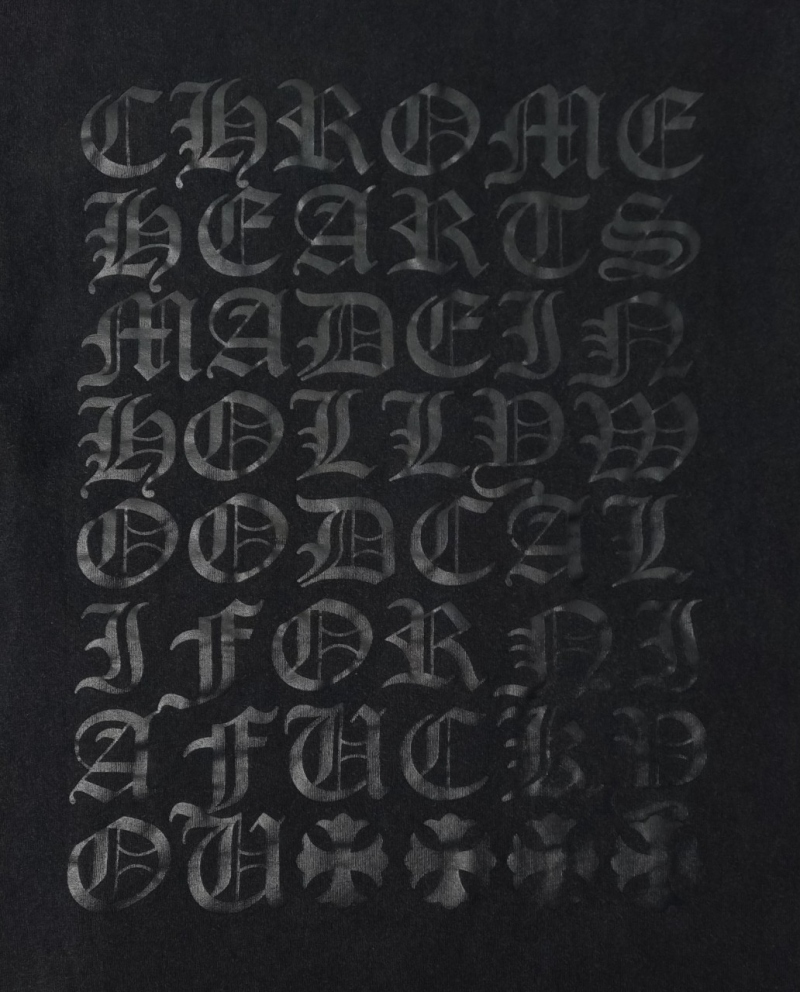 CHROME
HEARTS
MADEIN
HOLLYW
OODCAL
IFORNI
AFUCKY
OU